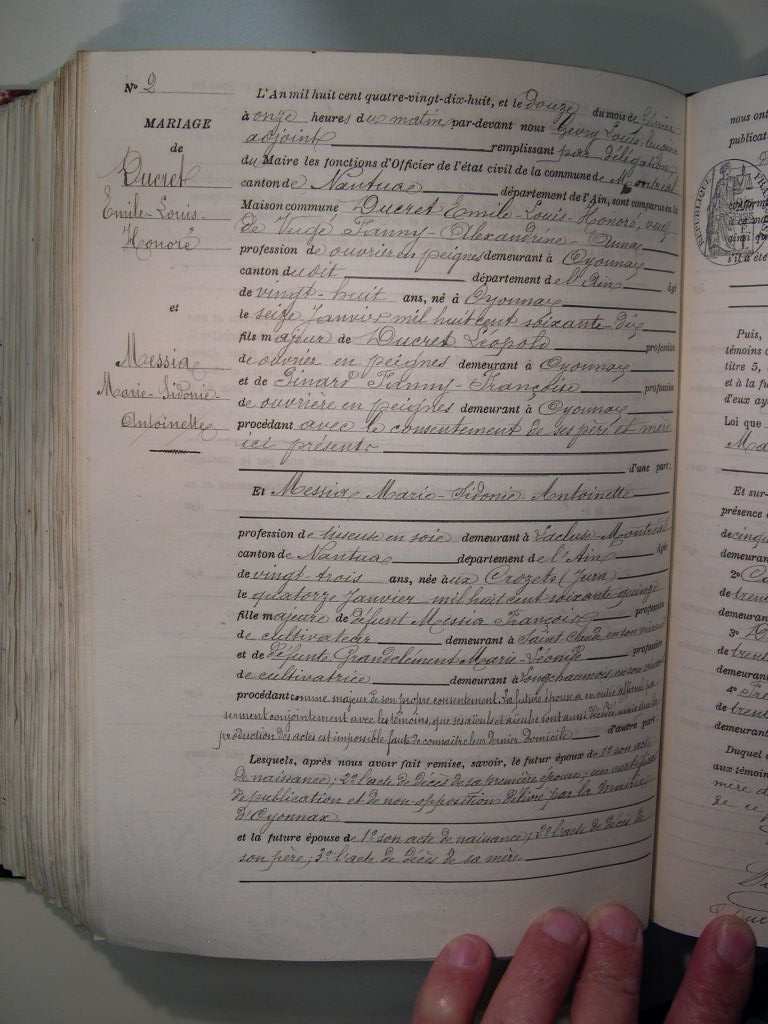 N° 2
MARIAGE
de
Ducret
Emile-Louis-
Honoré
et
Messia
Marie-Sidonie-
Antoinette
L'An mil huit cent quatre-vingt-dix-huit, et le douze du mois de février
à onze heures du matin par-devant nous Louis
adjoint remplissant par délégation
du Maire les fonctions d'Officier de l'état civil de la commune de Montréal
canton de Nantua département de l'Ain, sont comparus en la
Maison commune Ducret Emile-Louis-Honoré, veuf
de Fanny-Alexandrine
profession de ouvrier en peignes demeurant à Oyonnax
canton dudit département de l'Ain âgé
de vingt-huit ans, né à Oyonnax
le seize Janvier mil huit cent soixante-dix
fils majeur de Ducret Léopold profession
de ouvrier en peignes demeurant à Oyonnax
et de Fanny-Françoise profession
de ouvrière en peignes demeurant à Oyonnax
procédant avec le consentement de ses père et mère
ici présents
d'une part:
Et Messia Marie-Sidonie Antoinette
profession de tisseuse en soie demeurant à Montréal
canton de Nantua département de l'Ain âgée
de vingt-trois ans, née aux Crozets (Jura)
le quatorze Janvier mil huit cent soixante quinze
fille majeure de défunt Messia François profession
de cultivateur demeurant à Saint Claude en son vivant
et de défunte Grandclément Marie-Léonise profession
de cultivatrice demeurant à Longchaumois en son vivant
procédant comme majeur de son propre consentement. La future épouse a en outre affirmé par
serment conjointement avec les témoins, que ses aïeuls et aïeules sont aussi décédés, mais que la
production des actes est impossible, faute de connaître leur dernier domicile d'autre part.
Lesquels, après nous avoir fait remise, savoir, le futur époux de 1° son acte
de naissance; 2° l'acte de décès de sa première épouse; un certificat
de publication et de non-opposition délivré par la mairie
d'Oyonnax
et la future épouse de 1° son acte de naissance; 2° l'acte de décès de
son père; 3° l'acte de décès de sa mère
nous ont
publicat
RÉPUBLIQUE FRAN
conform
ainsi qu
s'il a été
Puis,
témoins
titre 5,
et à la fu
d'eux ay
Loi que
Ma
Et sur-
présence
de cinqu
demeuran
2°
de trent
demeuran
3°
trent
demeuran
4°
de trent
demeuran
Duquel
aux témoin
mère d
de ce